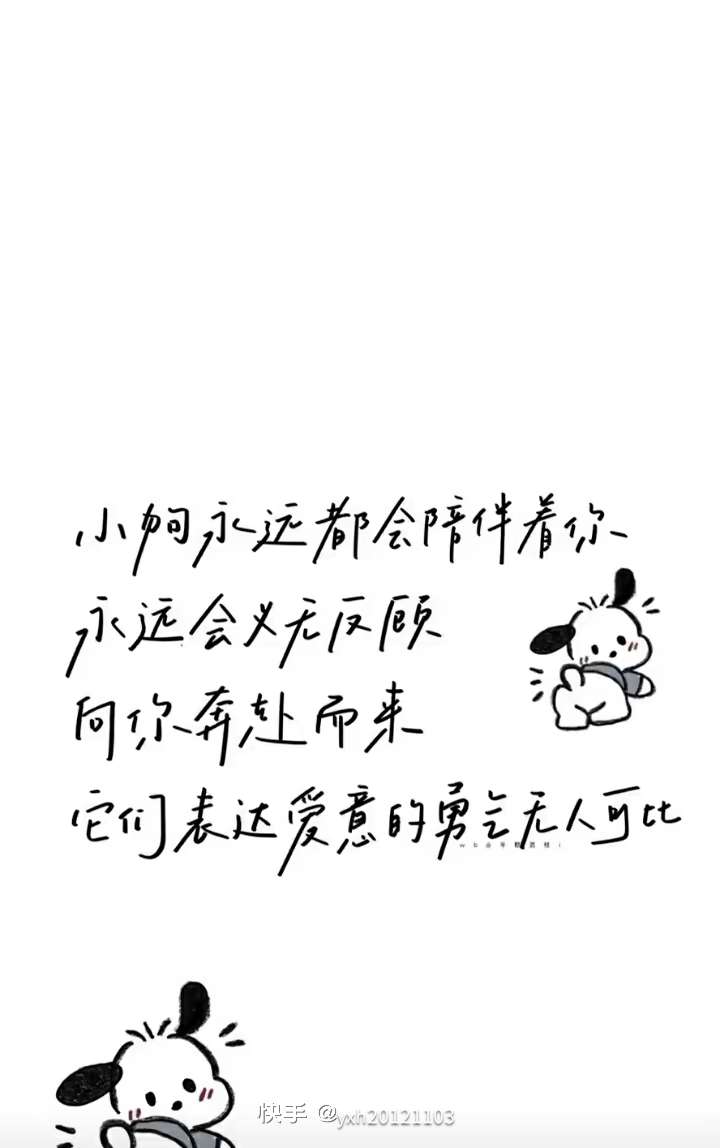 小狗永远都会陪伴着你
永远会义无反顾
向你奔赴而来
它们表达爱意的勇气无人可比
快手 @yxh20121103